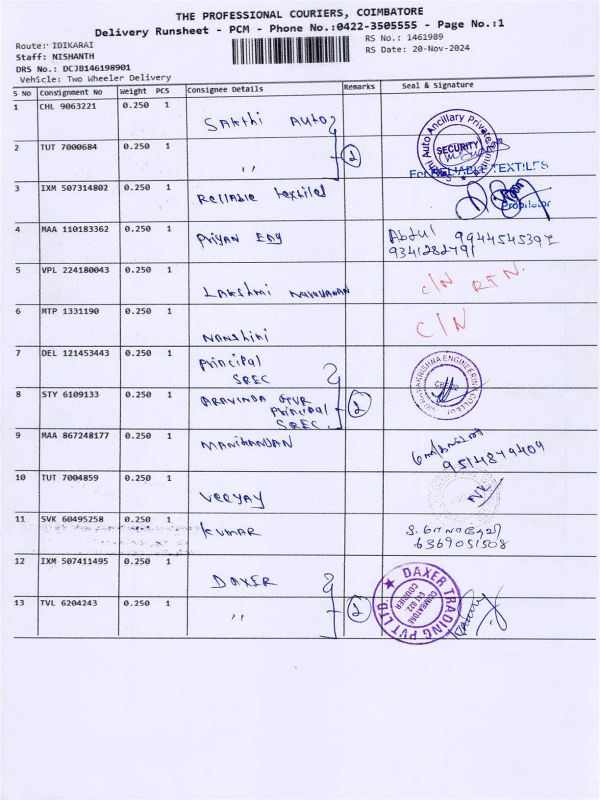 THE PROFESSIONAL COURIERS, COIMBATORE
Delivery Runsheet - PCM - Phone No.:0422-3505555 - Page No.:1
Route: IDIKARAI
RS No.: 1461989
Staff: NISHANTH
RS Date: 20-Nov-2024
DRS No.: DCJB146198901
Vehicle: Two Wheeler Delivery
S No Consignment No Weight PCS Consignee Details Remarks Seal & Signature
1 CHL 9063221 0.250 1 Sakthi Auto
Auto Ancillary Private
SECURITY
2 TUT 7000684 0.250 1 ,, 2
For RELIABLE TEXTILES
3 IXM 507314802 0.250 1 Reliable textiles
4 MAA 110183362 0.250 1 Priyan Eng Abdul 9944545397
9341282791
5 VPL 224180043 0.250 1 Lakshmi C/N RTN.
6 MTP 1331190 0.250 1 C/N
7 DEL 121453443 0.250 1 Principal
SREC
RAMAKRISHNA ENGINEERING COLLEGE
8 STY 6109133 0.250 1 Aravinda
Principal
SREC. 2
9 MAA 867248177 0.250 1 Manikandan 9514879409
10 TUT 7004859 0.250 1 Veeyay
11 SVK 60495258 0.250 1 Kumar
6369051508
12 IXM 507411495 0.250 1 DAXER
DAXER TRADING PVT LTD
COIMBATORE
641 022
COURIER
13 TVL 6204243 0.250 1 ,, 2